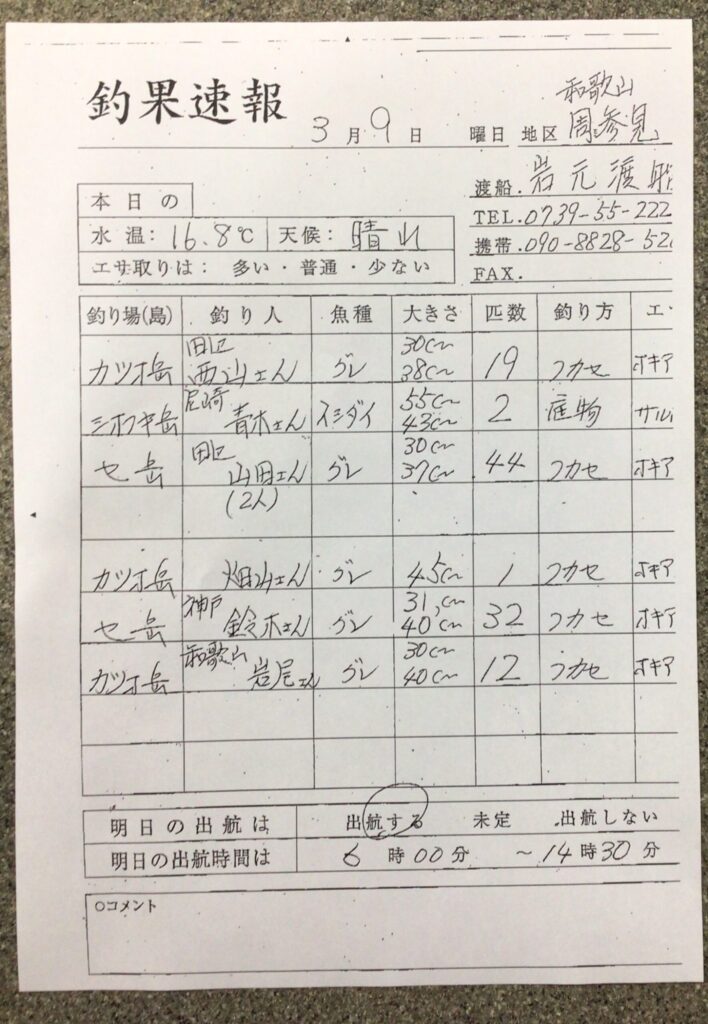 釣果速報
3月9日 曜日 地区 和歌山 周参見
渡船. 岩元渡船
TEL. 0739-55-222
携帯. 090-8828-52
FAX.
本日の
水温: 16.8℃ 天候: 晴れ
エサ取りは: 多い・普通・少ない
釣り場(島) 釣り人 魚種 大きさ 匹数 釣り方 エ
カツオ岳 田辺 西山さん グレ 30cm 38cm 19 フカセ オキア
シオフキ岳 尼崎 青木さん イシダイ 55cm 43cm 2 底物 サル
セ岳 田辺 山田さん (2人) グレ 30cm 37cm 44 フカセ オキア
カツオ岳 畑山さん グレ 45cm 1 フカセ オキア
セ岳 神戸 鈴木さん グレ 31cm 40cm 32 フカセ オキア
カツオ岳 和歌山 岩尾さん グレ 30cm 40cm 12 フカセ オキア
明日の出航は 出航する 未定 出航しない
明日の出航時間は 6時00分 〜14時30分
○コメント